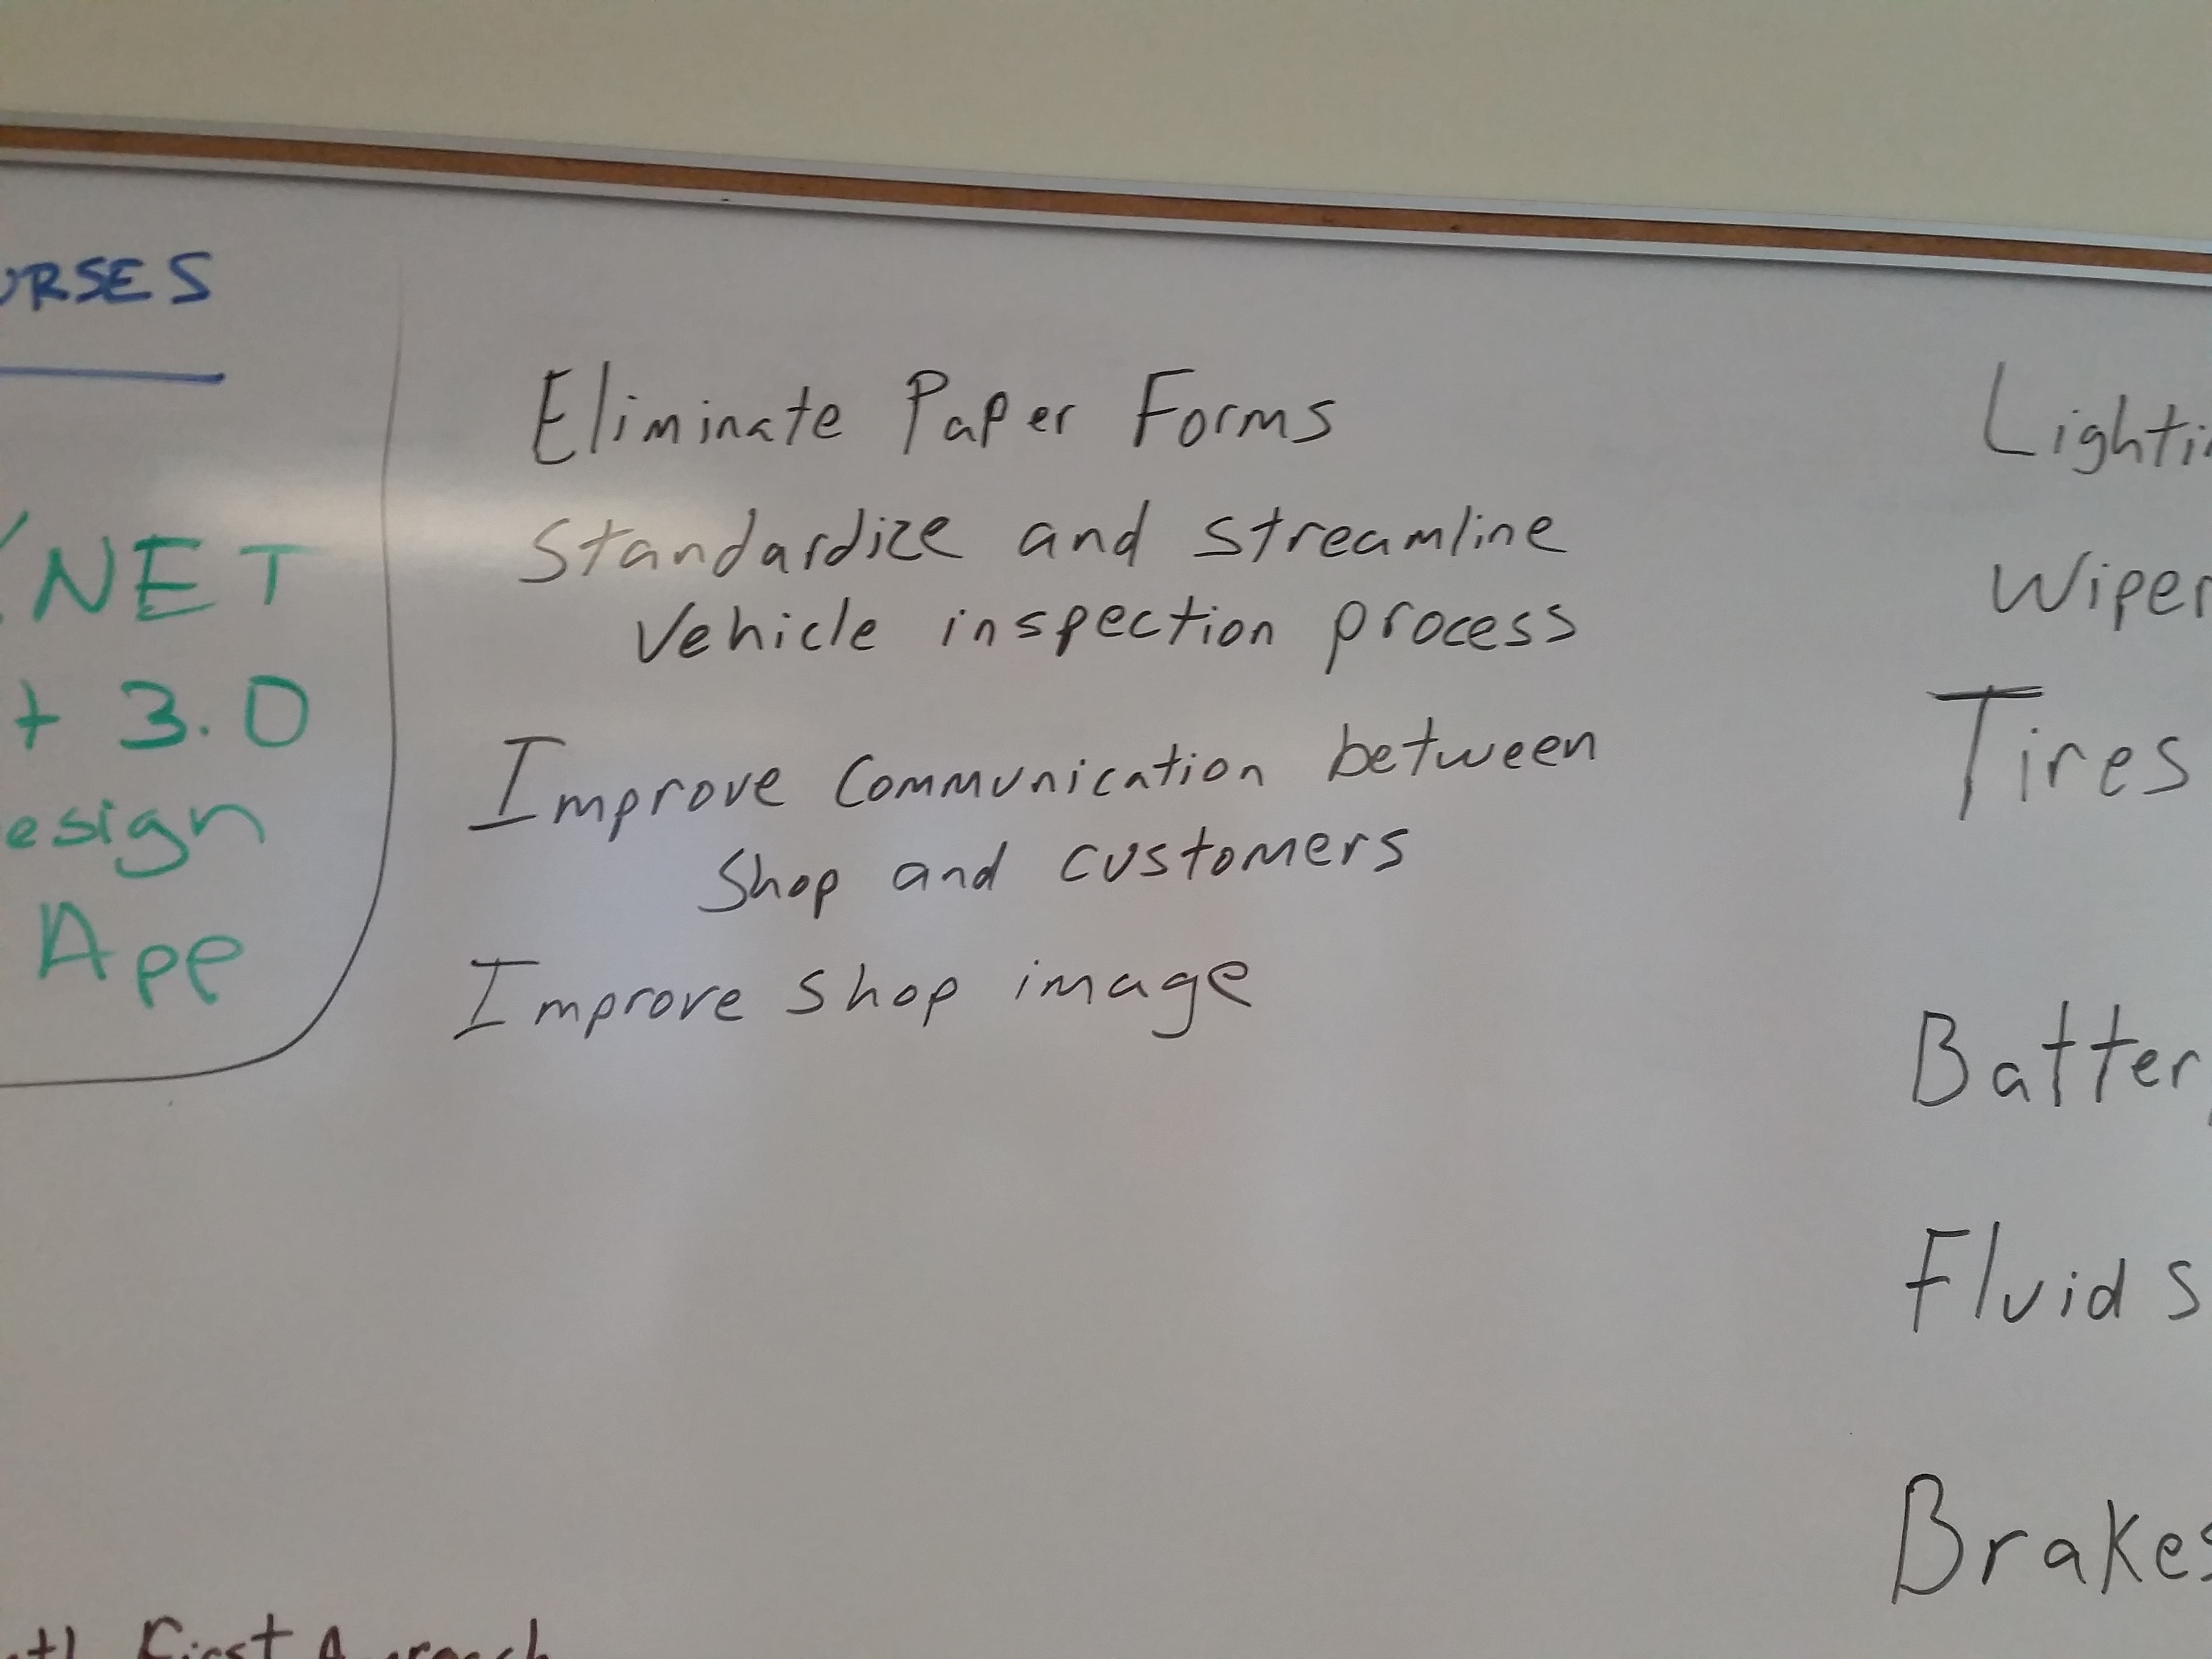 Eliminate Paper Forms
Standardize and streamline
Vehicle inspection process
Improve Communication between
Shop and customers
Improve shop image
NET
3.0
App
Tires
Fluids
Brakes
First